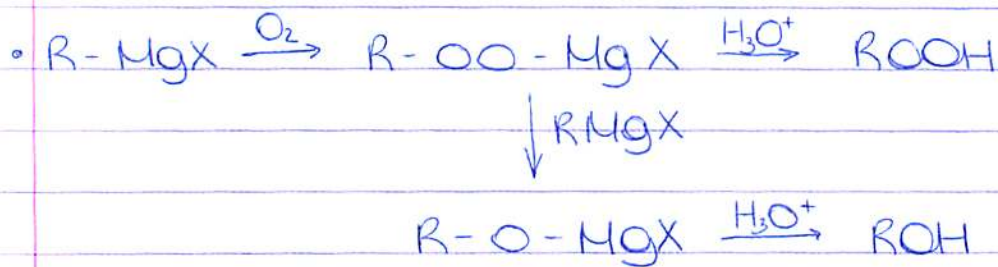 • R - MgX —O₂→ R - OO - MgX —H₃O⁺→ ROOH
↓ RMgX
R - O - MgX —H₃O⁺→ ROH